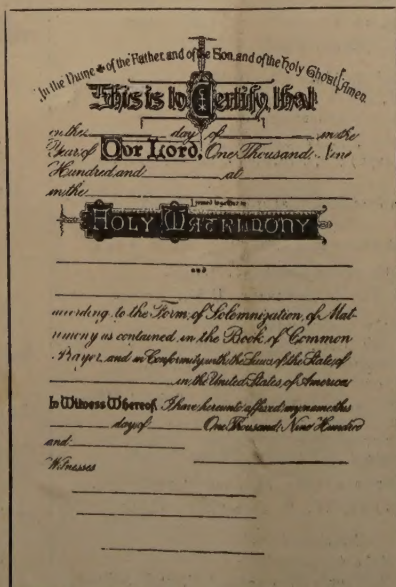 In the Name of the Father, and of the Son, and of the Holy Ghost, Amen.
This is to Certify, that
on the day of in the
Year of Our Lord, One Thousand Nine
Hundred and at
in the
I joined together in
HOLY MATRIMONY
and
according to the Form of Solemnization of Mat-
rimony as contained in the Book of Common
Prayer, and in Conformity with the Laws of the State of
in the United States of America
In Witness Whereof, I have hereunto affixed my name this
day of One Thousand Nine Hundred
and
Witnesses